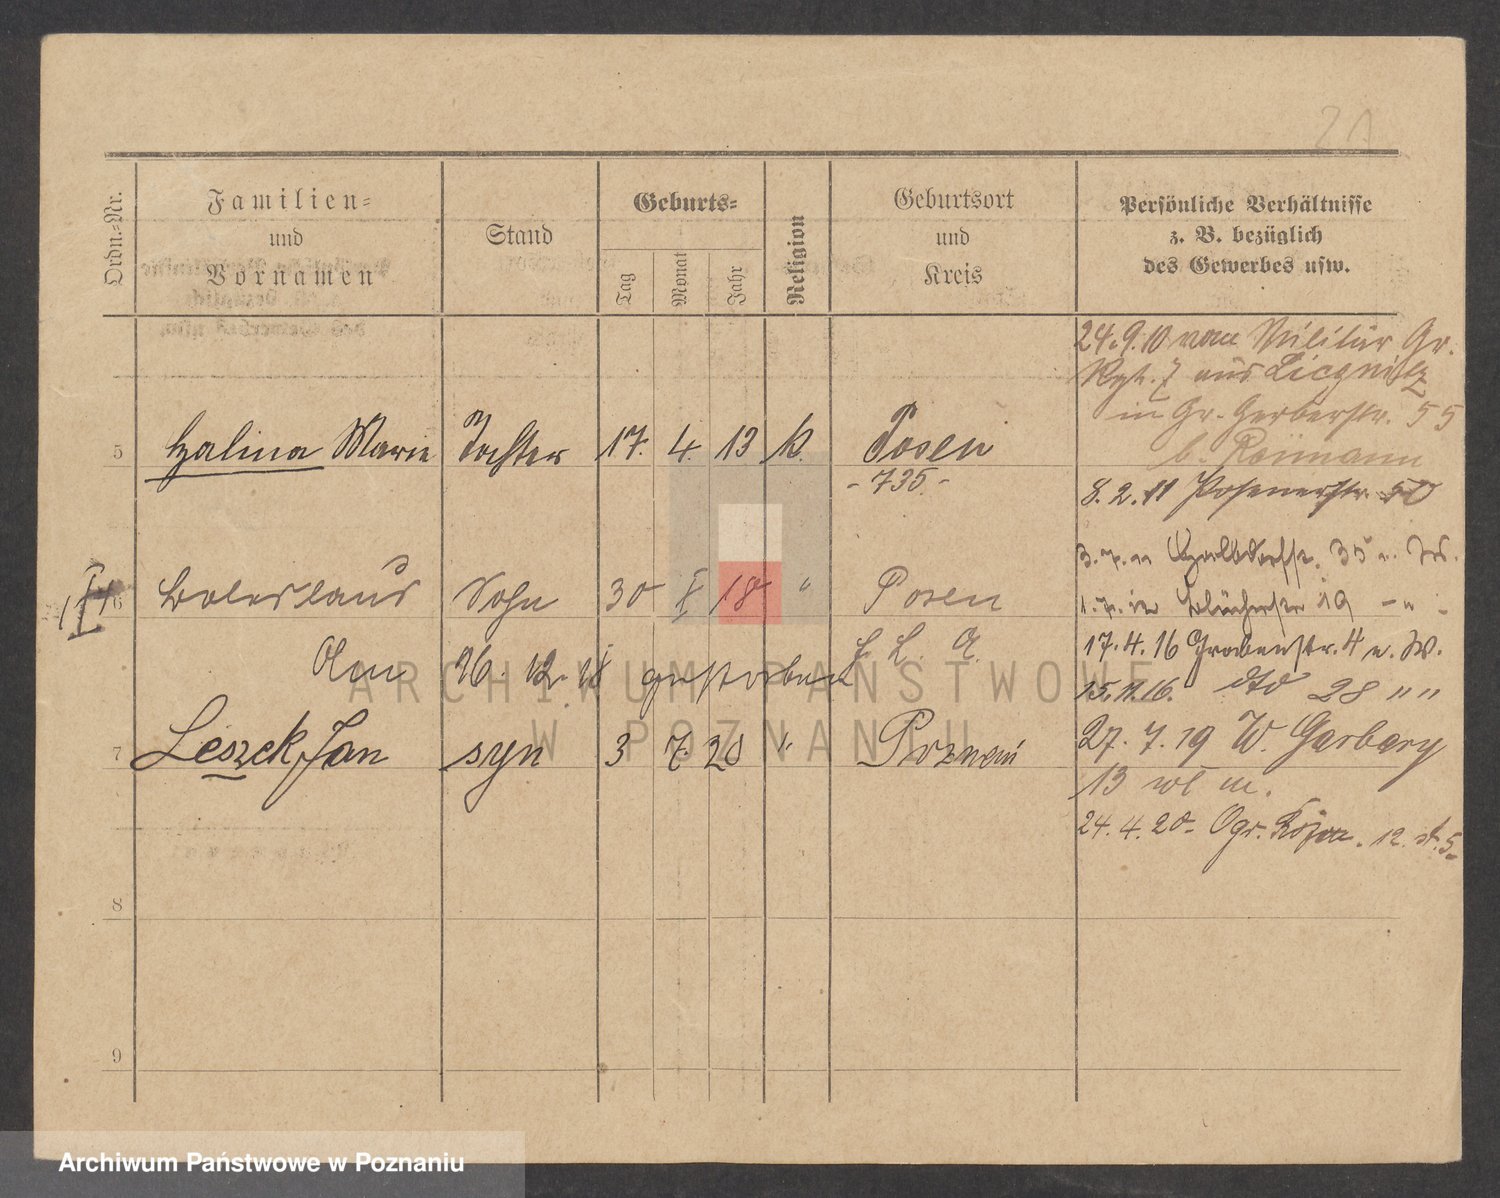 21
Ordn.-Nr.
Familien-
und
Vornamen
Stand
Geburts-
Tag
Monat
Jahr
Religion
Geburtsort
und
Kreis
Persönliche Verhältnisse
z. B. bezüglich
des Gewerbes usw.
24.9.10 vom Militär Gr.
Rgt. 7 aus Liegnitz
in Gr. Gerberstr. 55
b. Reimann
5 Halina Marie Tochter 17. 4. 13 k. Posen
- 735 -
8.2.11 Posenerstr. 50
35
6 Boleslaus Sohn 30 X 18 " Posen
19 - " -
Am 26. 12. 18 gestorben
17.4.16 Grabenstr. 4 u. W.
15.11.16. dto 28 " "
7 Leszek Jan syn 3 7. 20 " Poznań
27. 7. 19 W. Garbary
13 wł m.
24.4.20- Ogr. 12. st. 5-
8
9
ARCHIWUM PAŃSTWOWE
W POZNANIU
Archiwum Państwowe w Poznaniu